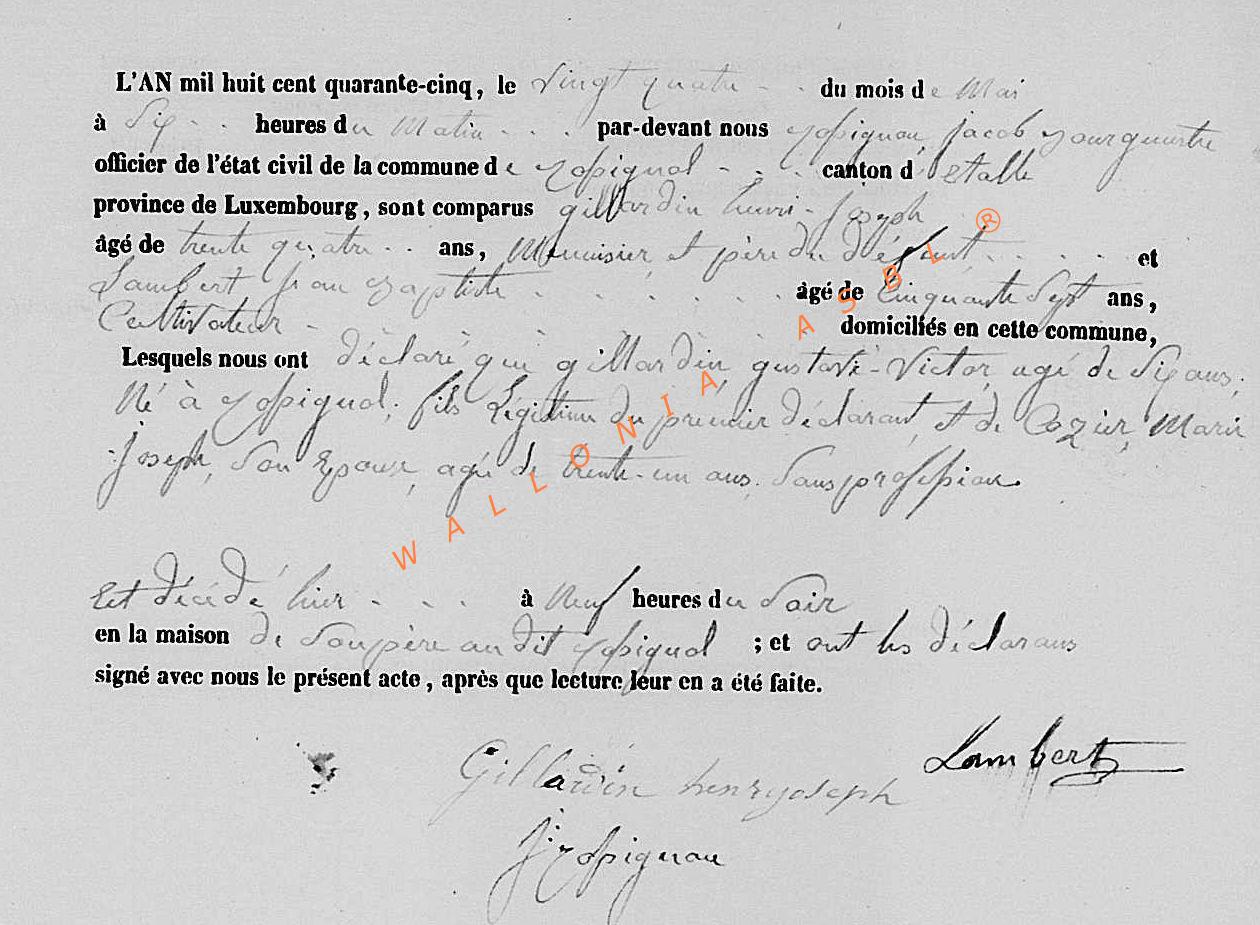 L'AN mil huit cent quarante-cinq, le vingt quatre du mois de Mai
à Six heures du Matin par-devant nous Rossignon, Jacob Bourguemestre
officier de l'état civil de la commune de Rossignol canton d'Etalle
province de Luxembourg, sont comparus gillardin henri-Joseph
âgé de trente quatre ans, Menuisier, et père du défunt et
Lambert Jean Baptiste âgé de Cinquante Sept ans,
Cultivateur domiciliés en cette commune,
Lesquels nous ont déclaré que gillardin, gustave-Victor, agé de Six ans,
Né à Rossignol, fils Légitime du premier déclarant, et de Rozier, Marie
Joseph, Son Epouse, agée de trente-un ans, Sans profession.
Est décédé hier à Neuf heures du Soir
en la maison de Son père au dit Rossignol ; et ont les déclarans
signé avec nous le présent acte, après que lecture leur en a été faite.
Lambert
Gillardin henry joseph
J: Rossignon
WALLONIA ASBL ®